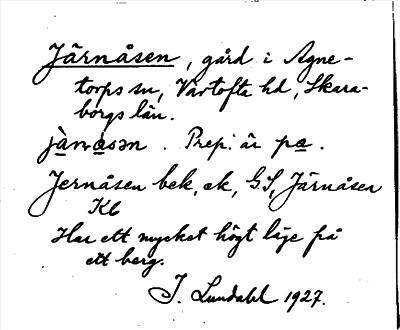 Järnåsen, gård i Agne-
torps sn, Vartofta hd, Skara-
borgs län.
jà̱na̱sən. Prep. är pa̱.
Jernåsen bek, ek, GS, Järnåsen
Kb
Har ett mycket högt läge på
ett berg.
J. Lundahl 1927.